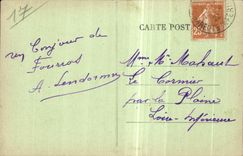 17
CARTE POST
un Bonjour de
Fouras
A. Lendormy
Mme Vve Mahaut
Le Cormier
par la Plaine
Loire-Inférieure